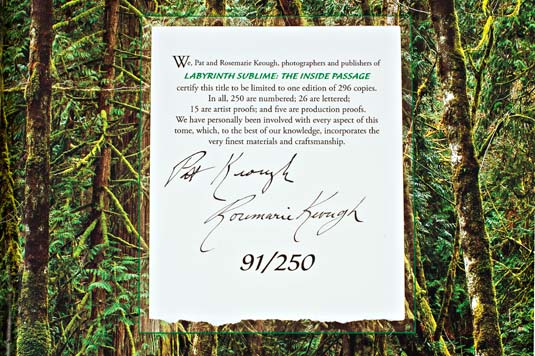 We, Pat and Rosemarie Keough, photographers and publishers of
LABYRINTH SUBLIME: THE INSIDE PASSAGE
certify this title to be limited to one edition of 296 copies.
In all, 250 are numbered; 26 are lettered;
15 are artist proofs; and five are production proofs.
We have personally been involved with every aspect of this
tome, which, to the best of our knowledge, incorporates the
very finest materials and craftsmanship.
Pat Keough
Rosemarie Keough
91/250